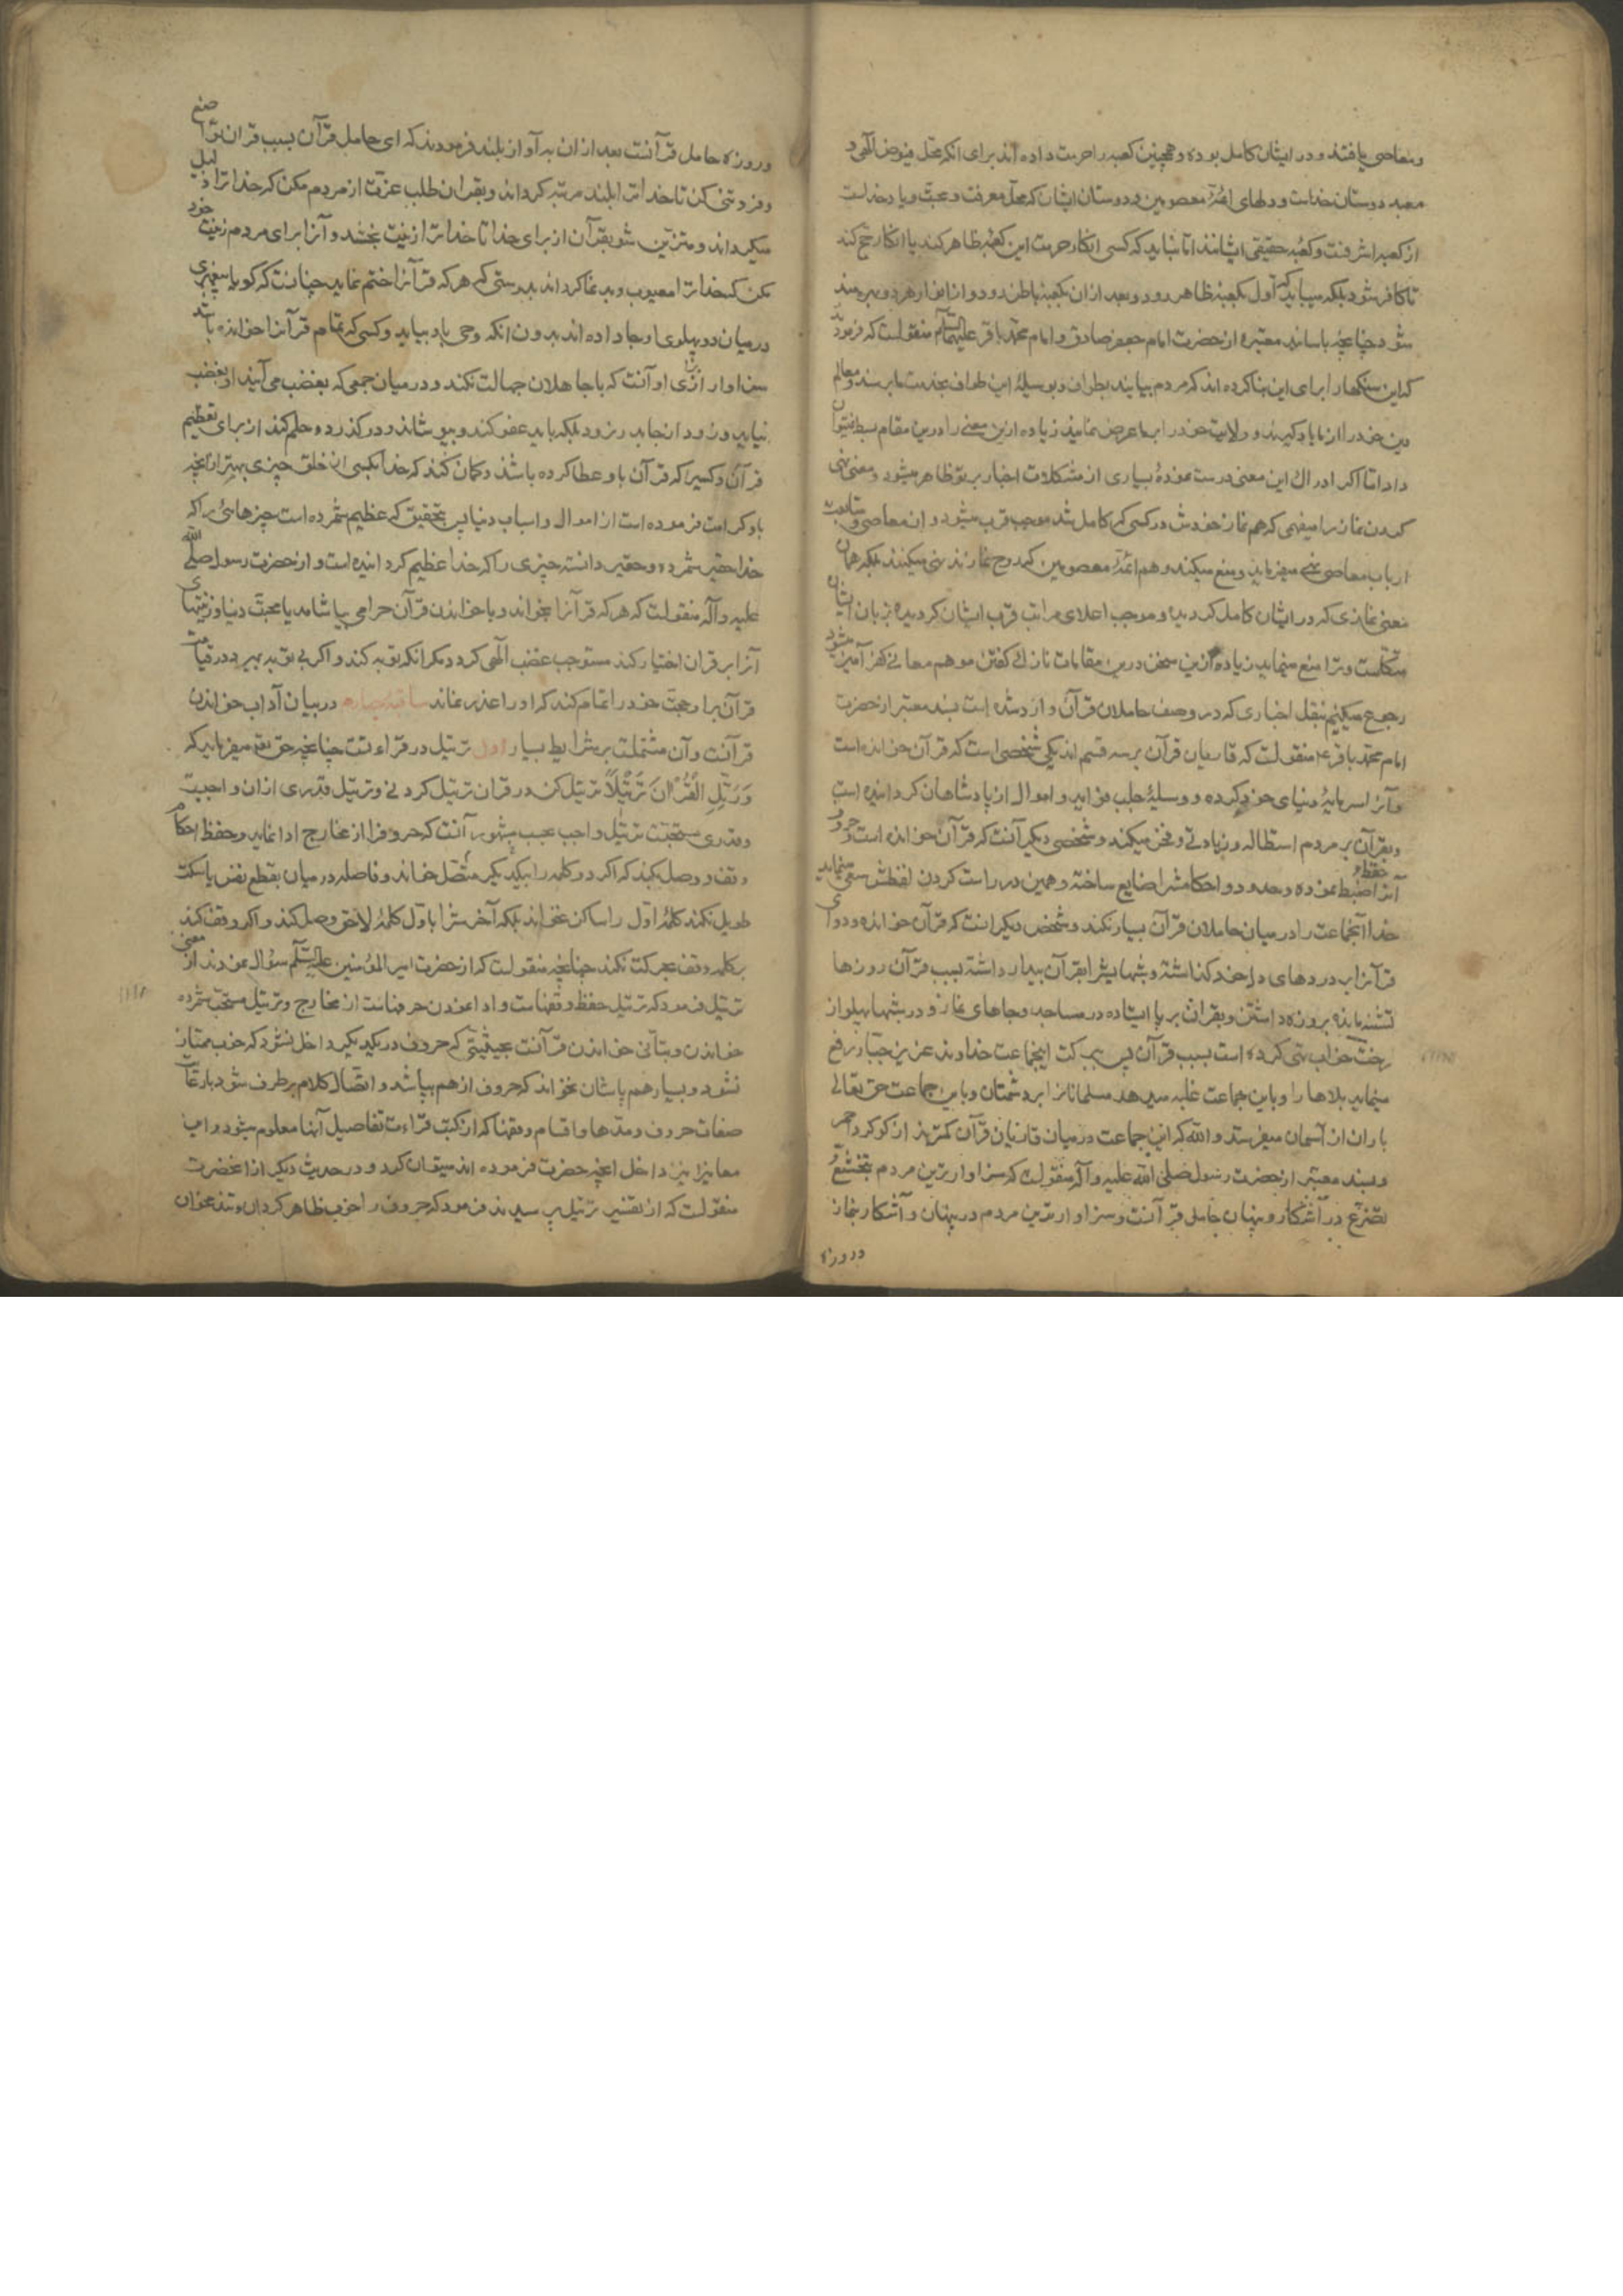 ومعاصی یافتند و در ایشان کامل بوده و همچنین کعبه را حرمت داده اند برای آنکه محل فیوض الهی و
معبد دوستان خداست و دلهای ائمهٔ معصومین و دوستان ایشان که محل معرفت و محبت و یاد خداست
از کعبه اشرفست و کعبهٔ حقیقی ایشانند اما نباید که کسی انکار حرمت این کعبهٔ ظاهر کند یا انکار حج کند
تا کافر شود بلکه میباید که اول بکعبهٔ ظاهر رود و بعد از ان بکعبهٔ باطن رود و از انوار هر دو بهره مند
شود چنانچه باسانید معتبره از حضرت امام جعفر صادق و امام محمد باقر علیهما السلام منقولست که فرمودند
که این سنگها را برای این بنا کرده اند که مردم بیایند بطواف و بوسیلهٔ این طواف بخدمت ما برسند و معالم
دین خود را از ما یاد گیرند و ولایت خود را بما عرض نمایند زیاده ازین معنی را درین مقام بسط نمیتوان
داد اما اگر ادراک این معنی درست نموده بسیاری از مشکلات اخبار بر تو ظاهر میشود و معنی نهی
کردن نماز را میفهمی که هم نماز خودش در کسی که کامل شد موجب قرب میشود و از معاصی و متابعت
ارباب معاصی نهی میفرماید و منع میکند و هم ائمهٔ معصومین که روح نمازند نهی میکنند بلکه همان
معنی نمازی که در ایشان کامل گردیده و موجب اعلای مراتب قرب ایشان گردیده بزبان ایشان
متکلم است و ترا منع مینماید زیاده ازین سخن درین مقامات نازک گفتن موهم معانی کفر آمیز میشود
رجوع میکنیم بنقل اخباری که در وصف حاملان قرآن وارد شده است بسند معتبر از حضرت
امام محمد باقر ع منقولست که قاریان قرآن بر سه قسم اند یکی شخصی است که قرآن خوانده است
و آنرا سرمایهٔ دنیای خود کرده و وسیلهٔ جلب فواید و اموال از پادشاهان گردانیده است
و بقرآن بر مردم استطاله و زیادتی و فخر میکند و شخصی دیگر آنست که قرآن خوانده است و حروف
آنرا حفظ و ضبط نموده و حدود و احکامش را ضایع ساخته و همین در راست کردن لفظش سعی مینماید
خدا اینجماعت را در میان حاملان قرآن بسیار نکند و شخص دیگر آنست که قرآن خوانده و دوای
قرآنرا بر دردهای دل خود گذاشته و شبها بیدار بقرآن بیدار داشته بسبب قرآن روزها
تشنه مانده بروزه داشتن و بقرآن بر پا ایستاده در مساجد و جاهای نماز و در شبها پهلو از
رخت خواب تهی کرده است بسبب قرآن پس ببرکت اینجماعت خداوند عزیز جبار رفع
مینماید بلاها را و باین جماعت غلبه میدهد مسلمانانرا بر دشمنان و باین جماعت حق تعالی
باران از آسمان میفرستد و الله که این جماعت در میان قاریان قرآن کمترند از گوگرد احمر
و بسند معتبر از حضرت رسول صلی الله علیه و آله منقولست که سزاوارترین مردم بتخشع
و تضرع در آشکار و پنهان حامل قرآنست و سزاوارترین مردم در پنهان و آشکار بنماز
و روزه
و روزه حامل قرآنست بعد از ان به آواز بلند فرمودند که ای حامل قرآن بسبب قرآن تواضع
و فروتنی کن تا خدا ترا بلند مرتبه گرداند و بقرآن طلب عزت از مردم مکن که خدا ترا ذلیل
میگرداند و متزین شو بقرآن از برای خدا تا خدا ترا زینت بخشد و آنرا برای مردم زینت خود
مکن که خدا ترا معیوب و بدنما گرداند بدرستی که هر که قرآنرا ختم نماید چنانست که گویا پیغمبری
در میان دو پهلوی او جا داده اند بدون آنکه وحی باو بیاید و کسی که تمام قرآنرا خوانده باشد
سزاوار ازبرای او آنست که با جاهلان جهالت نکند و در میان جمعی که بغضب می آیند او بغضب
نیاید و زود از جا بدر نرود بلکه باید عفو کند و بپوشاند و درگذرد و حلم کند از برای تعظیم
قرآن و کسیرا که قرآن باو عطا کرده باشند و گمان کند که خدا بکسی از خلق چیزی بهتر از آنچه
باو کرامت فرموده است از اموال و اسباب دنیا پس بتحقیق که عظیم شمرده است چیزهائی را که
خدا حقیر شمرده و حقیر دانسته چیزی را که خدا عظیم گردانیده است و از حضرت رسول صلی الله
علیه و آله منقولست که هر که قرآنرا بخواند و با خواندن قرآن حرامی بیاشامد یا محبت دنیا و زینتهای
آنرا بر قرآن اختیار کند مستوجب غضب الهی گردد مگر آنکه توبه کند و اگر بی توبه بمیرد در قیامت
قرآن برا و حجت خود را تمام کند که او را عذر نماند ساقیهٔ چهارم در بیان آداب خواندن
قرآنست و آن مشتملست بر شرایط بسیار اول ترتیل در قراءتست چنانچه حق تعم میفرماید که
وَرَتِّلِ الْقُرْانَ تَرْتِيلاً ترتیل کن در قرآن ترتیل کردنی و ترتیل قدری از ان واجبست
و قدری سنتست ترتیل واجب بحسب مشهور آنست که حروفرا از مخارج ادا نماید و حفظ احکام
وقف و وصل بکند که اگر دو کلمه را بیکدیگر متصل خواند و فاصله در میان بقطع نفس یا سکت
طویل نکند کلمهٔ اول را ساکن نخواند بلکه آخرش را باول کلمهٔ لاحق وصل کند و اگر وقف کند
بر کلمه وقف بحرکت نکند چنانچه منقولست که از حضرت امیر المؤمنین علیه السلام سؤال نمودند از معنی
ترتیل فرمود که ترتیل حفظ وقفهاست و ادا نمودن حرفهاست از مخارج و ترتیل مستحب شمرده
خواندن و بتأنی خواندن قرآنست بحیثیتی که حروف در یکدیگر داخل نشود که خوب ممتاز
نشود و بسیار هم پاشان نخواند که حروف از هم بپاشد و اتصال کلام برطرف شود با رعایت
صفات حروف و مدها و اقسام وقفها که از کتب قراءت تفاصیل آنها معلوم میشود و این
معانیرا نیز داخل آنچه حضرت فرموده اند میتوان کرد و در حدیث دیگر از آنحضرت
منقولست که از تفسیر ترتیل پرسیدند فرمود که حروف را خوب ظاهر گردان و تند مخوان